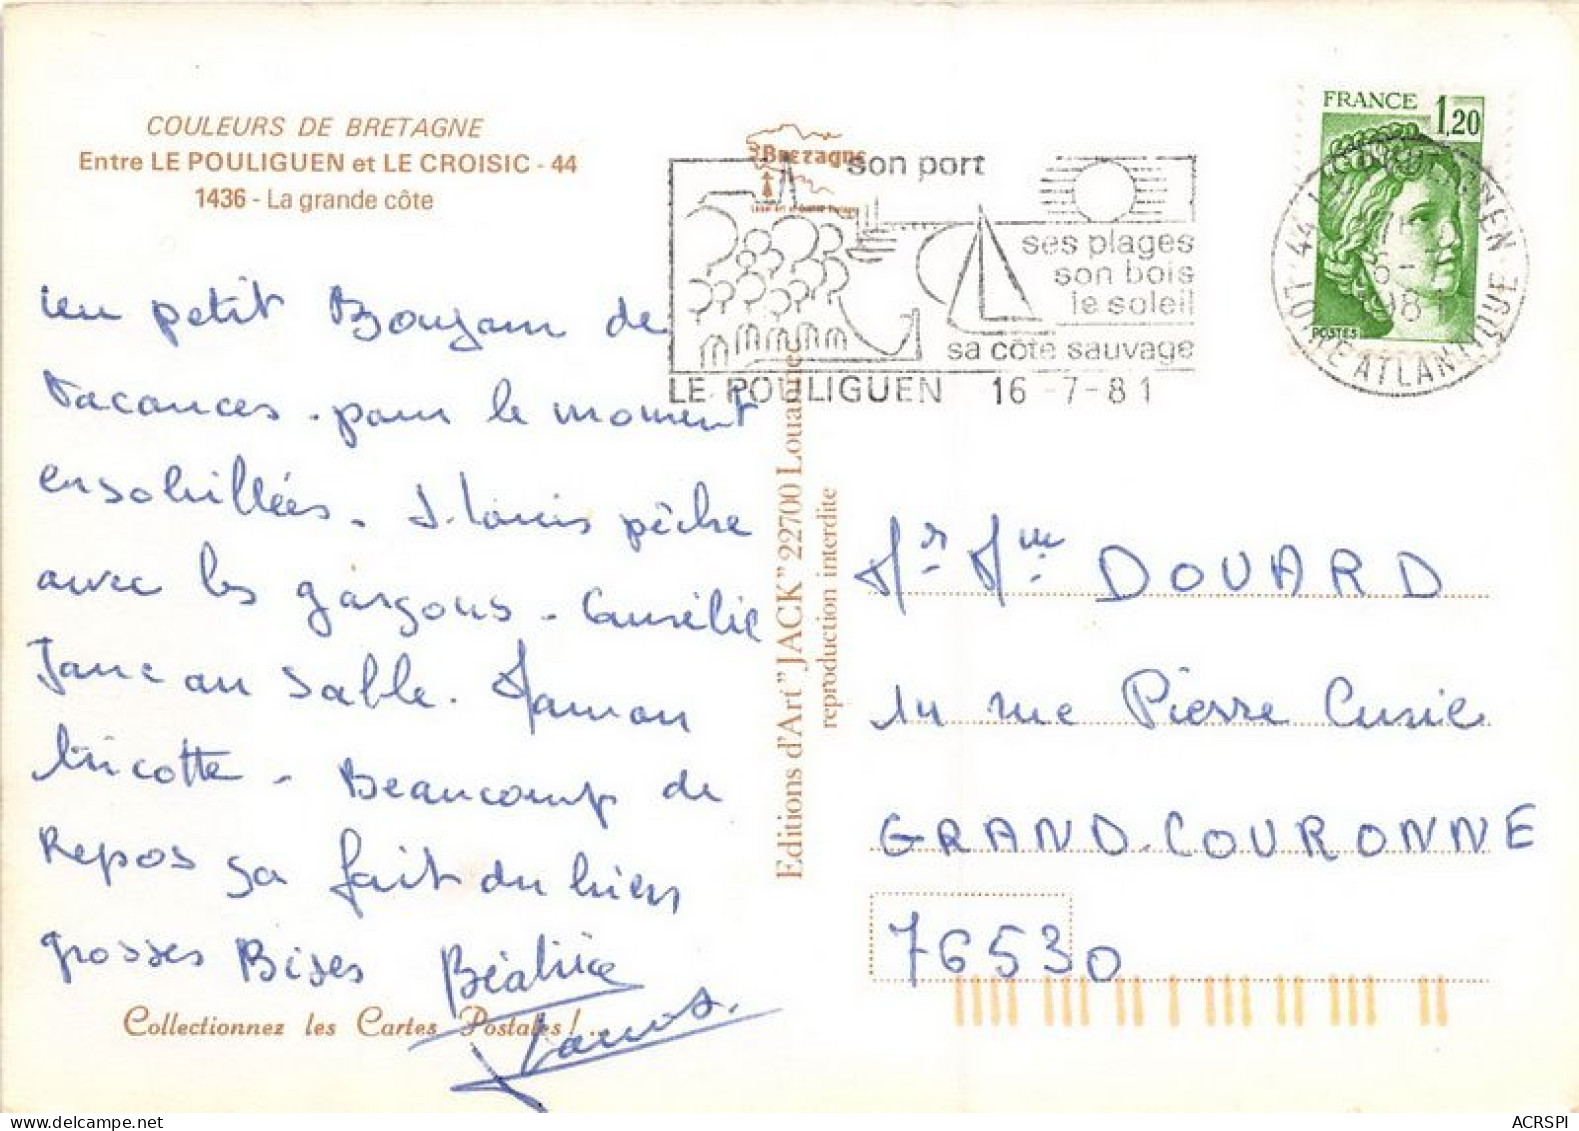 COULEURS DE BRETAGNE
Entre LE POULIGUEN et LE CROISIC - 44
1436 - La grande côte
Bretagne
son port
ses plages
son bois
le soleil
sa côte sauvage
LE POULIGUEN 16-7-81
FRANCE 1,20
POSTES
44 LE POULIGUEN
LOIRE ATLANTIQUE
un petit Bonjour de
vacances - pour le moment
ensoleillées - J. Louis pêche
avec les garçons - Aurélie
Jane au sable. Maman
tricotte - Beaucoup de
Repos sa fait du bien
grosses Bises Béatrice
Editions d'Art "JACK" 22700 Louannec
reproduction interdite
Mr Mme DOUARD
14 rue Pierre Curie
GRAND-COURONNE
76530
Collectionnez les Cartes Postales !...
ACRSPI